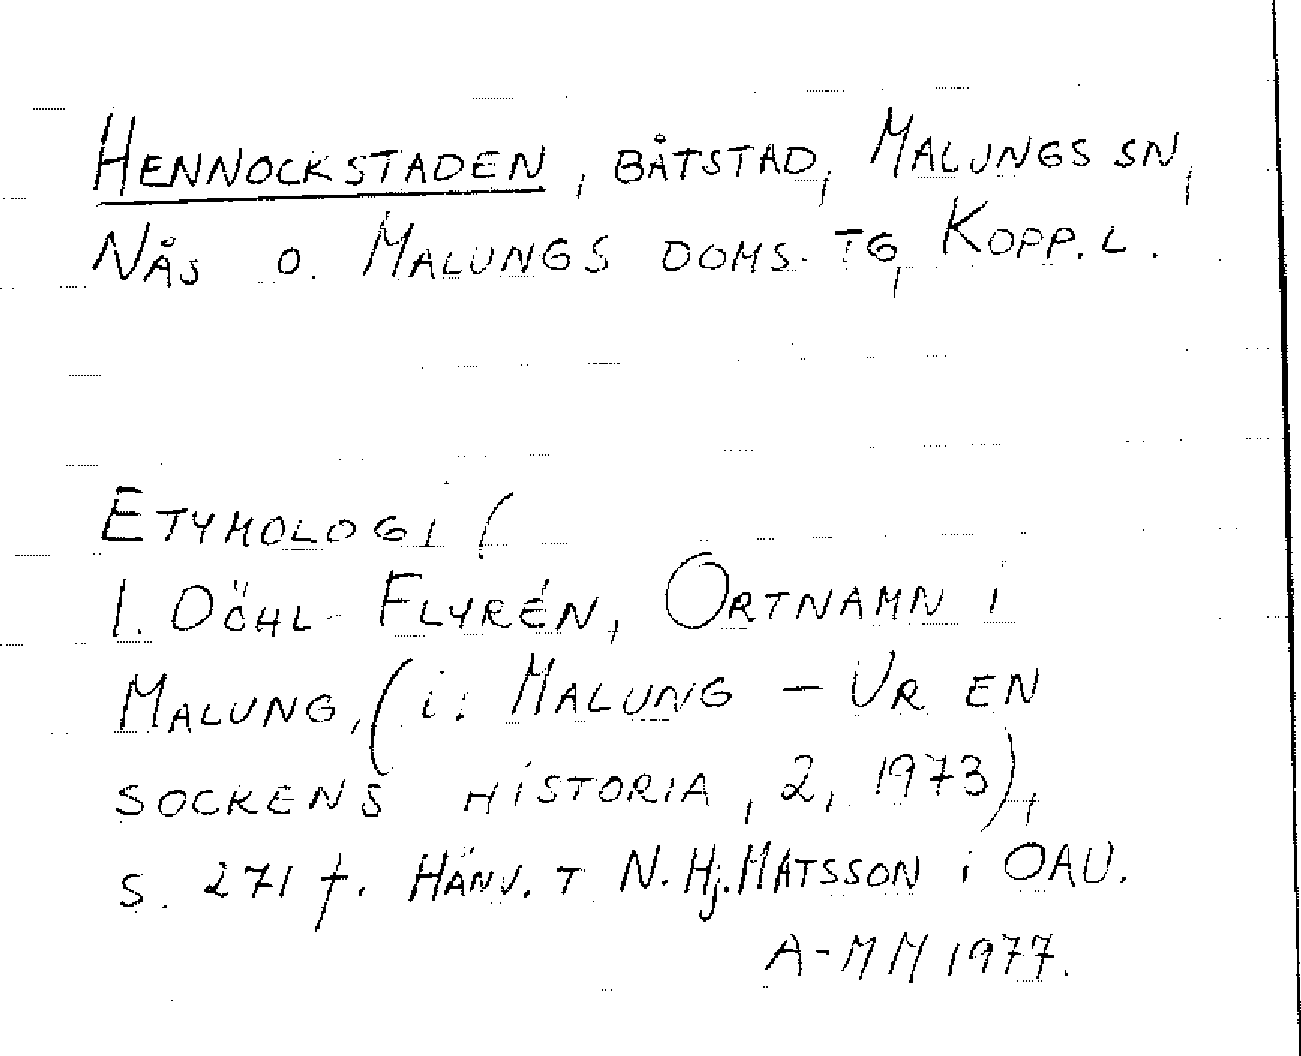 HENNOCKSTADEN, BÅTSTAD, MALUNGS SN,
NÅS O. MALUNGS DOMS. TG, KOPP. L.
ETYMOLOGI (
I. DÖHL-FLYRÉN, ORTNAMN I
MALUNG, (i: MALUNG – UR EN
SOCKENS HISTORIA, 2, 1973),
S. 271 f. HÄNV. T N. Hj. MATSSON i OAU.
A-MM 1977.